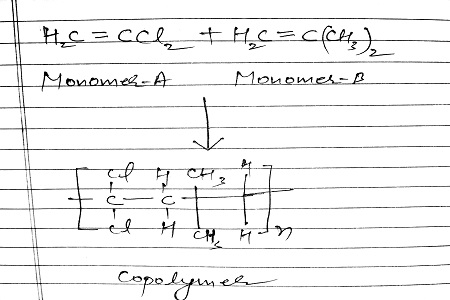 H₂C = CCl₂ + H₂C = C(CH₃)₂
Monomer-A Monomer-B
Cl H CH₃ H
C — C
Cl H CH₃ H n
Copolymer